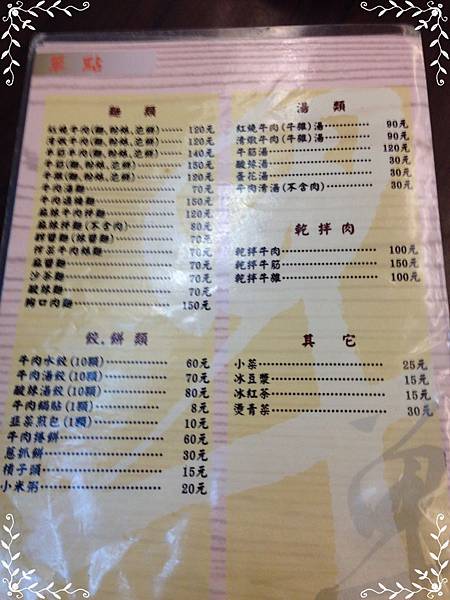 單點
麵類
紅燒牛肉(麵,粉娘,泡餅)······ 120元
清燉牛肉(麵,粉娘,泡餅)······ 120元
牛筋肉(麵,粉娘,泡餅)······ 140元
牛筋(麵,粉娘,泡餅)······ 150元
牛雜(麵,粉娘,泡餅)······ 120元
牛肉湯麵······ 70元
牛肉溫燥麵······ 150元
麻辣牛肉拌麵······ 120元
麻辣拌麵(不含肉)······ 80元
炸醬麵(辣醬麵)······ 70元
榨菜牛肉絲麵······ 70元
麻醬麵······ 70元
沙茶麵······ 70元
酸辣麵······ 70元
胸口肉麵······ 150元
餃.餅類
牛肉水餃(10顆)······ 60元
牛肉湯餃(10顆)······ 70元
酸辣湯餃(10顆)······ 80元
牛肉鍋貼(1顆)······ 8元
韭菜煎包(1顆)······ 10元
牛肉捲餅······ 60元
蔥抓餅······ 30元
槓子頭······ 15元
小米粥······ 20元
湯類
紅燒牛肉(牛雜)湯······ 90元
清燉牛肉(牛雜)湯······ 90元
牛筋湯······ 120元
酸辣湯······ 30元
蛋花湯······ 30元
牛肉清湯(不含肉)······ 30元
乾拌肉
乾拌牛肉······ 100元
乾拌牛筋······ 150元
乾拌牛雜······ 100元
其它
小菜······ 25元
冰豆漿······ 15元
冰紅茶······ 15元
燙青菜······ 30元